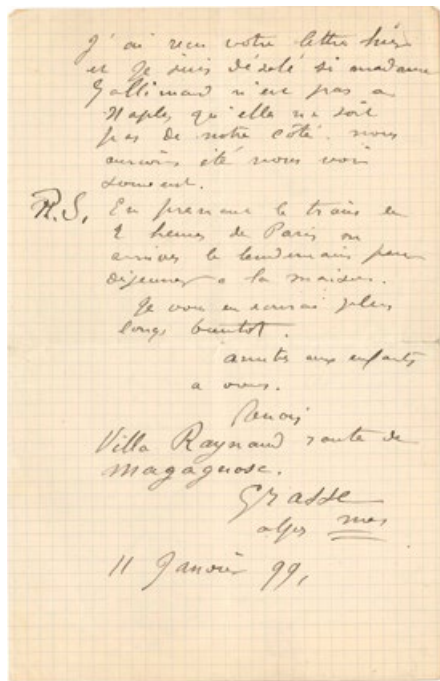 J'ai recu votre lettre hier
et Je suis désolé si madame
Gallimard n'est pas a
Naples qu'elle ne soit
pas de notre côté. nous
aurions été nous voir
souvent.
P.S. En prenant le train de
2 heures de Paris on
arrives le lendemain pour
déjeuner a la maison.
Je vous en
longs bientot.
amities aux enfants
a vous.
Renoir
Villa Raynaud route de
Magagnosc.
Grasse
alpes mes
11 Janvier 99,